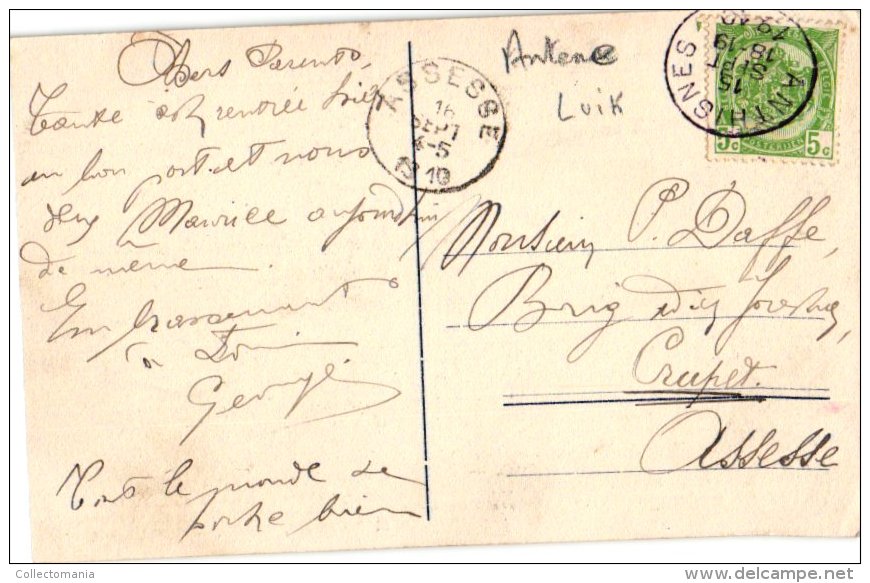 Chers Parents,
Tante est rentrée hier
en bon port et nous
Maurice aujourd'hui
de même.
Embrassements
à Tous
George
Tout le monde se
porte bien
ASSESSE
16
SEPT
4-5
1910
Antene
Luik
ANTHISNES
15
SEPT
18-19
1910
5c 5c
Monsieur P. Daffe,
Brig. Forestier,
Crupet.
Assesse
Collectomania
delcampe.net